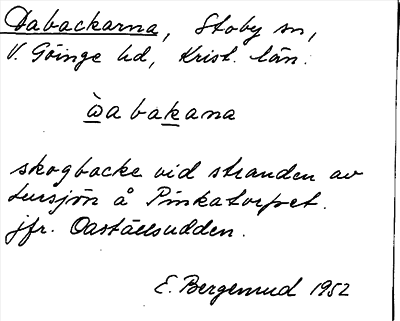 Dabackarna, Stoby sn,
V. Göinge hd, Krist. län.
ẁabakana
skogbacke vid stranden av
Lursjön å Pinkatorpet.
jfr. Oaställsudden.
E. Bergenrud 1952